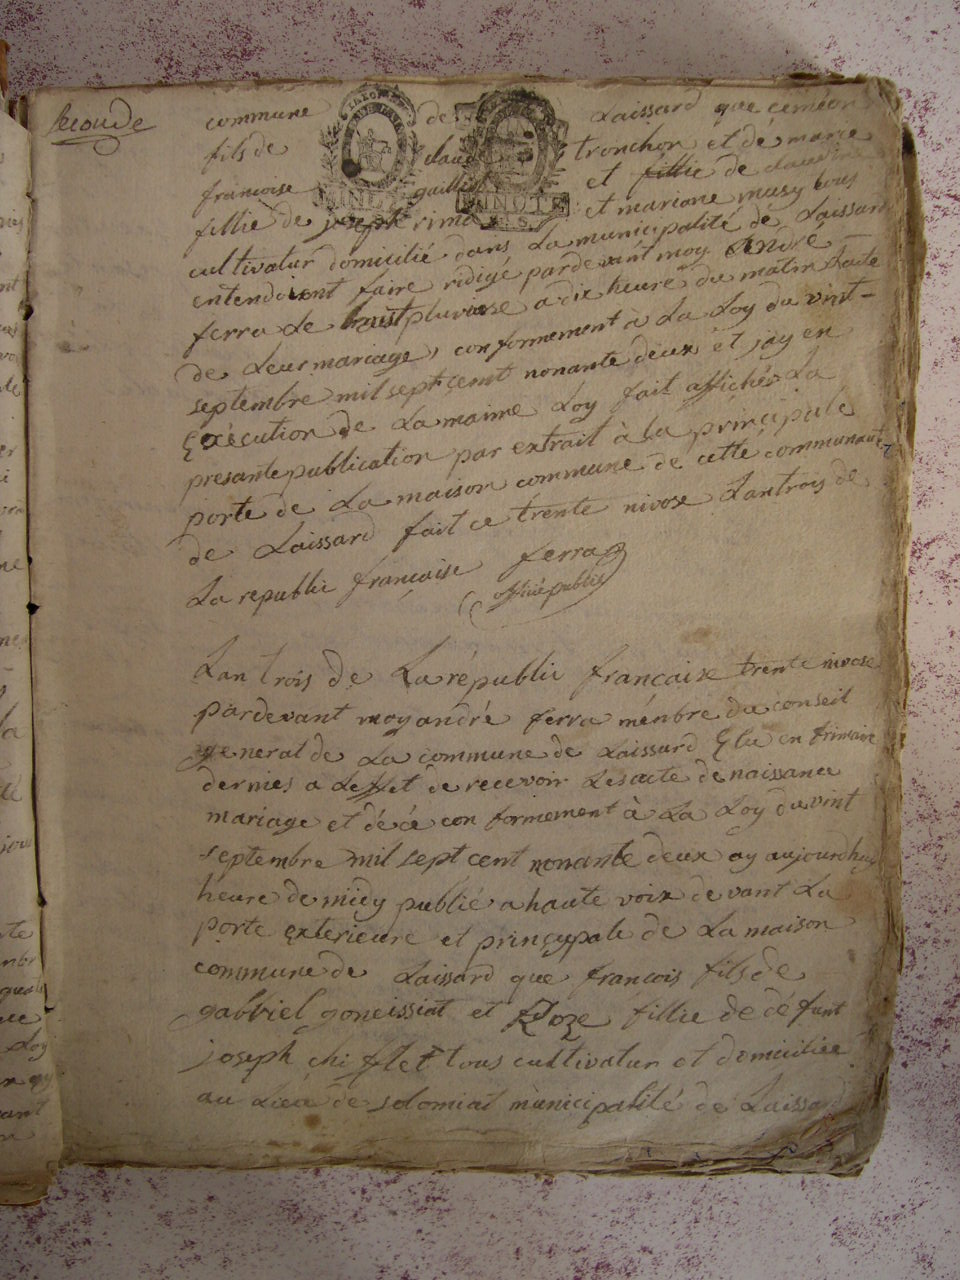 secoude
commune de Laissard que ceméon
fils de claud tronchon et dé marce
francoise gaillet et fillie de claudine
fillie de joseph rima et mariane musy tous
cultivatur domicilié dans La municipalité de Laissard
entendement faire ridigé pardevent moy André
ferra Le huist pluviose a dix heure du matin Lacte
de Leur mariage, conformement à La Loy du vint
septembre mil sept cemt nonante deux et jay en
Exécution de La maime Loy fait affichér La
presante publication par extrait à la principale
porte de La maison commune de cette communauté
de Laissard fait ce trente nivose Lantrois de
La republi française ferra
offisié public
Lan trois de La républi francaise trente nivose
pardevant moy andré ferra ménbre du conseil
general de La commune de Laissard Elu en frimaire
dernies a Leffet de recevoir Lesacte de naissance
mariage et décé con formement à La Loy du vint
septembre mil sept cent nonante deux ay aujourdhuy
heure de midy publié a haute voix devant La
porte exterieure et prinçypale de La maison
commune de Laissard que françois fils de
gabriel goneissiat et Roze fillie de défunt
joseph chifflet tous cultivatur et domiciliée
au Lieu de solomiat municipalité de Laissard